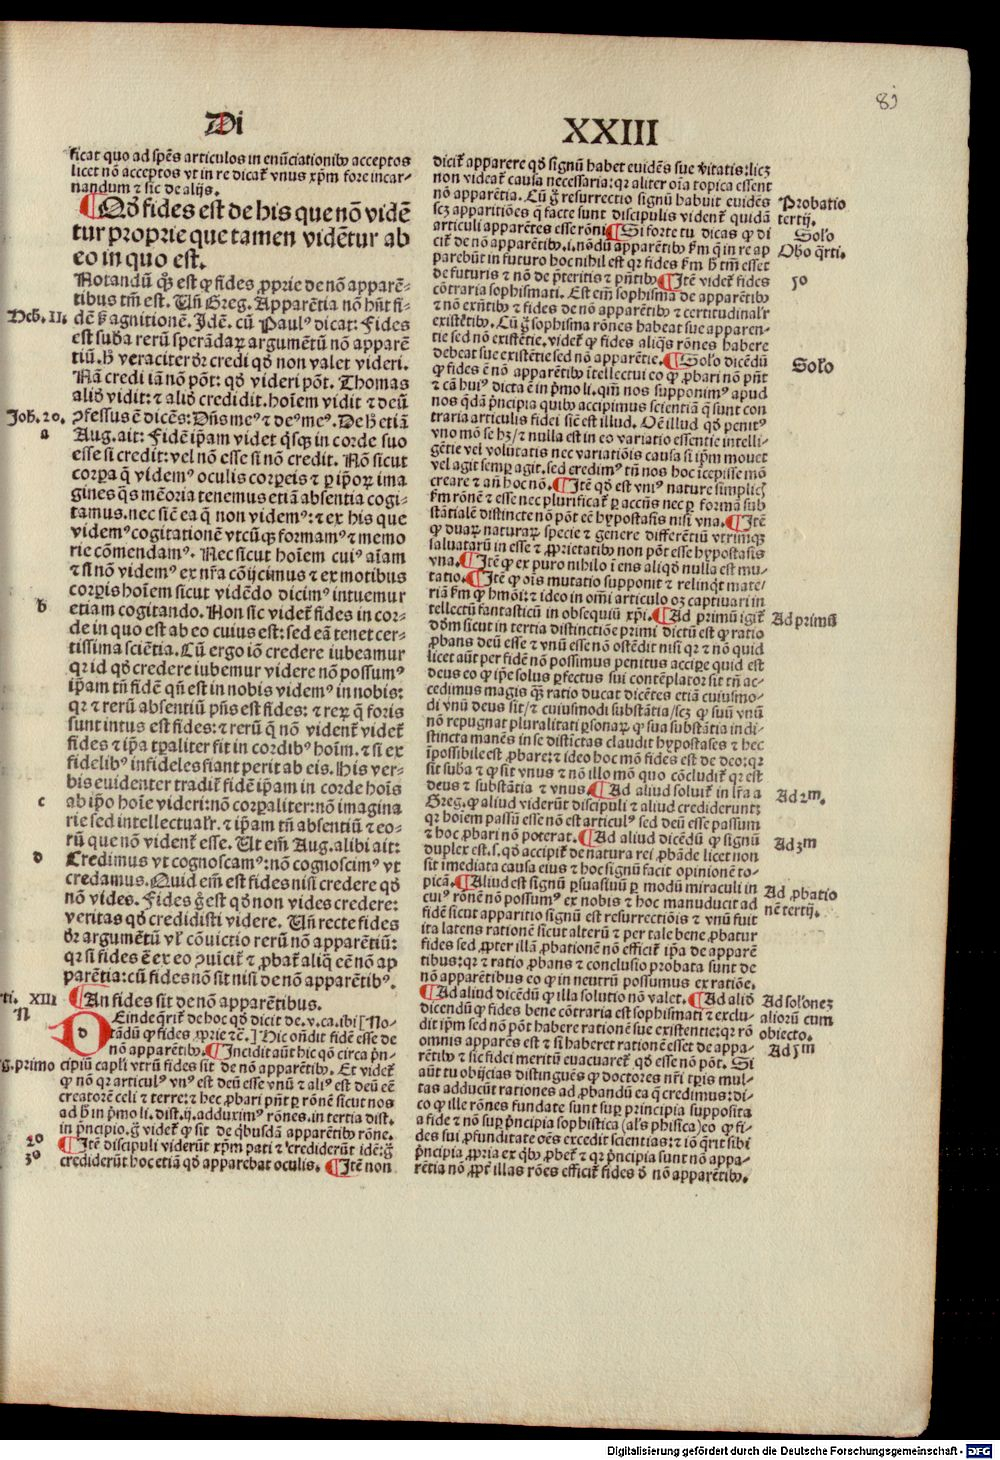 Di
XXIII
ficat quo ad spēs articulos in enūciationibꝰ acceptos
licet nō acceptos vt in re dicat̄ vnus xp̄m fore incar-
nandum ⁊ sic de alijs.
¶ Qd̓ fides est de his que nō vidē
tur proprie que tamen vidētur ab
eo in quo est.
Notandū qꝫ est ꝙ fides ꝓprie de nō apparē-
tibus tm̄ est. Un̄ Greg. Apparētia nō hn̄t fi-
dē ſꝫ agnitionē. Idē. cū Paulꝰ dicat: Fides
est suba rerū sperādaꝝ argumētū nō apparē
tiū. h̄ veraciter dr̄ credi qd̓ non valet videri.
Nā credi iā nō pōt: qd̓ videri pōt. Thomas
aliđ vidit: ⁊ aliđ credidit. hoīem vidit ⁊ deū
ꝯfessus ē dicēs: Dn̄s meꝰ ⁊ deꝰ meꝰ. De h̄ etiā
Aug. ait: Fidē ip̄am videt qͥsqꝫ in corde suo
esse si credit: vel nō esse si nō credit. Nō sicut
corꝑa q̄ videmꝰ oculis corꝑeis ⁊ ꝑ ip̄oꝝ ima
gines qͣs mēoria tenemus etiā absentia cogi-
tamus. nec sic̄ ea q̄ non videmꝰ: ⁊ ex his que
videmꝰ cogitationē vtcūqꝫ formamꝰ ⁊ memo
rie cōmendamꝰ. Nec sicut hoīem cuiꝰ aīam
⁊ si nō videmꝰ ex nr̄a cōijcimus ⁊ ex motibus
corꝑis hoīem sicut vidēdo dicimꝰ intuemur
etiam cogitando. Non sic videt̄ fides in cor-
de in quo est ab eo cuius est: sed eā tenet cer-
tissima sciētia. Cū ergo iō credere iubeamur
qꝛ id qd̓ credere iubemur videre nō possumꝰ
ip̄am tn̄ fidē qn̄ est in nobis videmꝰ in nobis:
qꝛ ⁊ rerū absentiū p̄n̄s est fides: ⁊ reꝝ q̄ foris
sunt intus est fides: ⁊ rerū q̄ nō vident̄ videt̄
fides ⁊ ip̄a tꝑaliter fit in cordibꝰ hoīm. ⁊ si ex
fidelibꝰ infideles fiant perit ab eis. His ver-
bis euidenter tradit̄ fidē ip̄am in corde hoīs
ab ip̄o hoīe videri: nō corꝑaliter: nō imagina
rie sed intellectualr̄. ⁊ ip̄am tn̄ absentiū ⁊ eo-
rū que nō vident̄ esse. Ut em̄ Aug. alibi ait:
Credimus vt cognoscamꝰ: nō cognoscimꝰ vt
credamus. Quid em̄ est fides nisi credere qd̓
nō vides. Fides g̊ est qd̓ non vides credere:
veritas qd̓ credidisti videre. Un̄ recte fides
dr̄ argumētū vl̓ cōuictio rerū nō apparētiū:
qꝛ si fides ē ex eo ꝯuicit̄ ⁊ ꝓbat̄ aliq̄ eē nō ap
parētia: cū fides nō sit nisi de nō apparētibꝰ.
¶ An fides sit de nō apparētibus.
DEinde qͥrit̄ de hoc qd̓ dicit de. v. ca. ibi [No-
tādū ꝙ fides ꝓprie ⁊c̄.] Hic oñdit fidē esse de
nō apparētibꝰ. ¶ Incidit aūt hic qō circa p̄n-
cipiū capli vtrū fides sit de nō apparētibꝰ. Et videt̄
ꝙ nō qꝛ articulꝰ vnꝰ est deū esse vnū ⁊ aliꝰ est deū eē
creatorē celi ⁊ terre: ⁊ hec ꝓbari pn̄t ꝑ rōnē sicut nos
ad h̄ in p̄mo li. dist. ij. adduximꝰ rōnes. in tertia dist.
in p̄ncipio. g̊ videt̄ ꝙ sit de qͥbusdā apparētibꝰ rōne.
¶ Itē discipuli viderūt xp̄m pati ⁊ crediderūt idē: g̊
crediderūt hoc etiā qd̓ apparebat oculis. ¶ Itē non
Heb. 11.
Joh. 20.
a
b
c
d
ti. XIII
N
g. primo
2o
3o
dicit̄ apparere qd̓ signū habet euidēs sue v̓itatis: licꝫ
non videat̄ causa necessaria: qꝛ aliter oīa topica essent
nō apparētia. Cū g̊ resurrectio signū habuit euidēs
scꝫ apparitiōes q̄ facte sunt discipulis vident̄ quidā
articuli apparētes esse rōni ¶ Si forte tu dicas ꝙ di
cit̄ de nō apparētibꝰ. i. nōdū apparētibꝰ fm ꝙ in re ap
parebūt in futuro hoc nihil est qꝛ fides fm h̄ tm̄ esset
de futuris ⁊ nō de p̄teritis ⁊ pn̄tibꝰ ¶ Itē videt̄ fides
cōtraria sophismati. Est em̄ sophisma de apparētibꝰ
⁊ nō exn̄tibꝰ ⁊ fides de nō apparētibꝰ ⁊ certitudinalr̄
existētibꝰ. Cū g̊ sophisma rōnes habeat sue apparen-
tie sed nō existētie. videt̄ ꝙ fides aliqͣs rōnes habere
debeat sue existētie sed nō apparētie. ¶ Solo dicēdū
ꝙ fides ē nō apparētibꝰ itellectui eo ꝙ ꝓbari nō pn̄t
⁊ cā huiꝰ dicta ē in p̄mo li. qm̄ nos supponimꝰ apud
nos qͣdā p̄ncipia quibꝰ accipimus sciētiā q̄ sunt con
traria articulis fidei sic̄ est illud. Oē illud qd̓ penitꝰ
vno mō se hꝫ/ ⁊ nulla est in eo variatio essentie intelli-
gētie vel volūtatis nec variatiōis causa si ip̄m mouet
vel agit semꝑ agit. sed credimꝰ tn̄ nos hoc icepisse mō
creare ⁊ an̄ hoc nō. ¶ Itē qd̓ est vniꝰ nature simplicꝭ
fm rōnē ⁊ esse nec plurificat̄ ꝑ accn̄s nec ꝑ formā sub
stātialē distincte nō pōt eē hypostasis nisi vna. ¶ Itē
ꝙ duaꝝ naturaꝝ specie ⁊ genere differētiū vtriusqꝫ
saluataꝝ in esse ⁊ ꝓprietatibꝰ non pōt esse hypostasis
vna. ¶ Itē ꝙ ex puro nihilo i ens aliqđ nulla est mu-
tatio. ¶ Itē ꝙ oīs mutatio supponit ⁊ relinqͥt mate-
riā fm ꝙ hmōi: ⁊ ideo in om̄i articulo oꝫ captiuari in
tellectū fantasticū in obsequiū xp̄i. ¶ Ad primū igit̄
dōm sicut in tertia distinctiōe primi dictū est ꝙ ratio
ꝓbans deū esse ⁊ vnū esse nō ostēdit nisi qꝛ ⁊ nō quid
licet aūt per fidē nō possimus penitus accipe quid est
deus eo ꝙ ip̄e solus ꝑfectus sui contēplator sit tn̄ ac-
cedimus magis qͣꝫ ratio ducat dicētes etiā cuiusmo-
di vnū deus sit/ ⁊ cuiusmodi substātia/ scꝫ ꝙ suū vnū
nō repugnat pluralitati ꝑsonaꝝ ꝙ sua substātia indi-
stincta manēs in se distīctas claudit hypostases ⁊ hec
īpossibile est ꝓbare: ⁊ ideo hoc mō fides est de deo: qꝛ
sit suba ⁊ ꝙ sit vnus ⁊ nō illo mō quo cōcludit̄ qꝛ est
deus ⁊ substātia ⁊ vnus. ¶ Ad aliud soluit̄ in lr̄a a
Greg. ꝙ aliud viderūt discipuli ⁊ aliud crediderunt:
qꝛ hoiem passū esse nō est articulꝰ sed deū esse passum
⁊ hoc ꝓbari nō poterat. ¶ Ad aliud dicēdū ꝙ signū
duplex est. s. qd̓ accipit̄ de natura rei ꝓbāde licet non
sit īmediata causa eius ⁊ hoc signū facit opinionē to-
picā. ¶ Aliud est signū ꝑsuasiuū ꝑ modū miraculi in
cuiꝰ rōnē nō possumꝰ ex nobis ⁊ hoc manuducit ad
fidē sicut apparitio signū est resurrectiōis ⁊ vnū fuit
ita latens rationē sicut alterū ⁊ per tale bene ꝓbatur
fides sed ꝓpter illā ꝓbationē nō efficit̄ ip̄a de apparē
tibus: qꝛ ⁊ ratio ꝓbans ⁊ conclusio probata sunt de
nō apparētibus eo ꝙ in neutrū possumus ex ratiōe.
¶ Ad aliud dicēdū ꝙ illa solutio nō valet. ¶ Ad aliđ
dicendū ꝙ fides bene cōtraria est sophismati ⁊ exclu-
dit ip̄m sed nō pōt habere rationē sue existentie: qꝛ rō
omnis apparēs est ⁊ si haberet rationē esset de appa-
rētibꝰ ⁊ sic fidei meritū euacuaret̄ qd̓ esse nō pōt. Si
aūt tu obijcias distinguēs ꝙ doctores nr̄i tꝑis mul-
tas adducūt rationes ad ꝓbandū ea q̄ credimus: di-
co ꝙ ille rōnes fundate sunt suꝑ principia supposita
a fide ⁊ nō suꝑ p̄ncipia sophistica (al's phisica) eo ꝙ fi-
des sui ꝓfunditate oēs excedit scientias: ⁊ iō qͥrit sibi
p̄ncipia ꝓpria ex qͥbꝰ ꝓbet̄ ⁊ qꝛ p̄ncipia sunt nō appa-
rētia nō ꝓpt̄ illas rōes efficit̄ fides đ nō apparētibꝰ.
Probatio
tertij.
Solo
Obo qͣrti.
5o
Solo
Ad primū
Ad 2m.
Ad 3m
Ad ꝓbatio
nē tertij.
Ad solonez
aliorū cum
obiecto.
Ad 5m
Digitalisierung gefördert durch die Deutsche Forschungsgemeinschaft - DFG